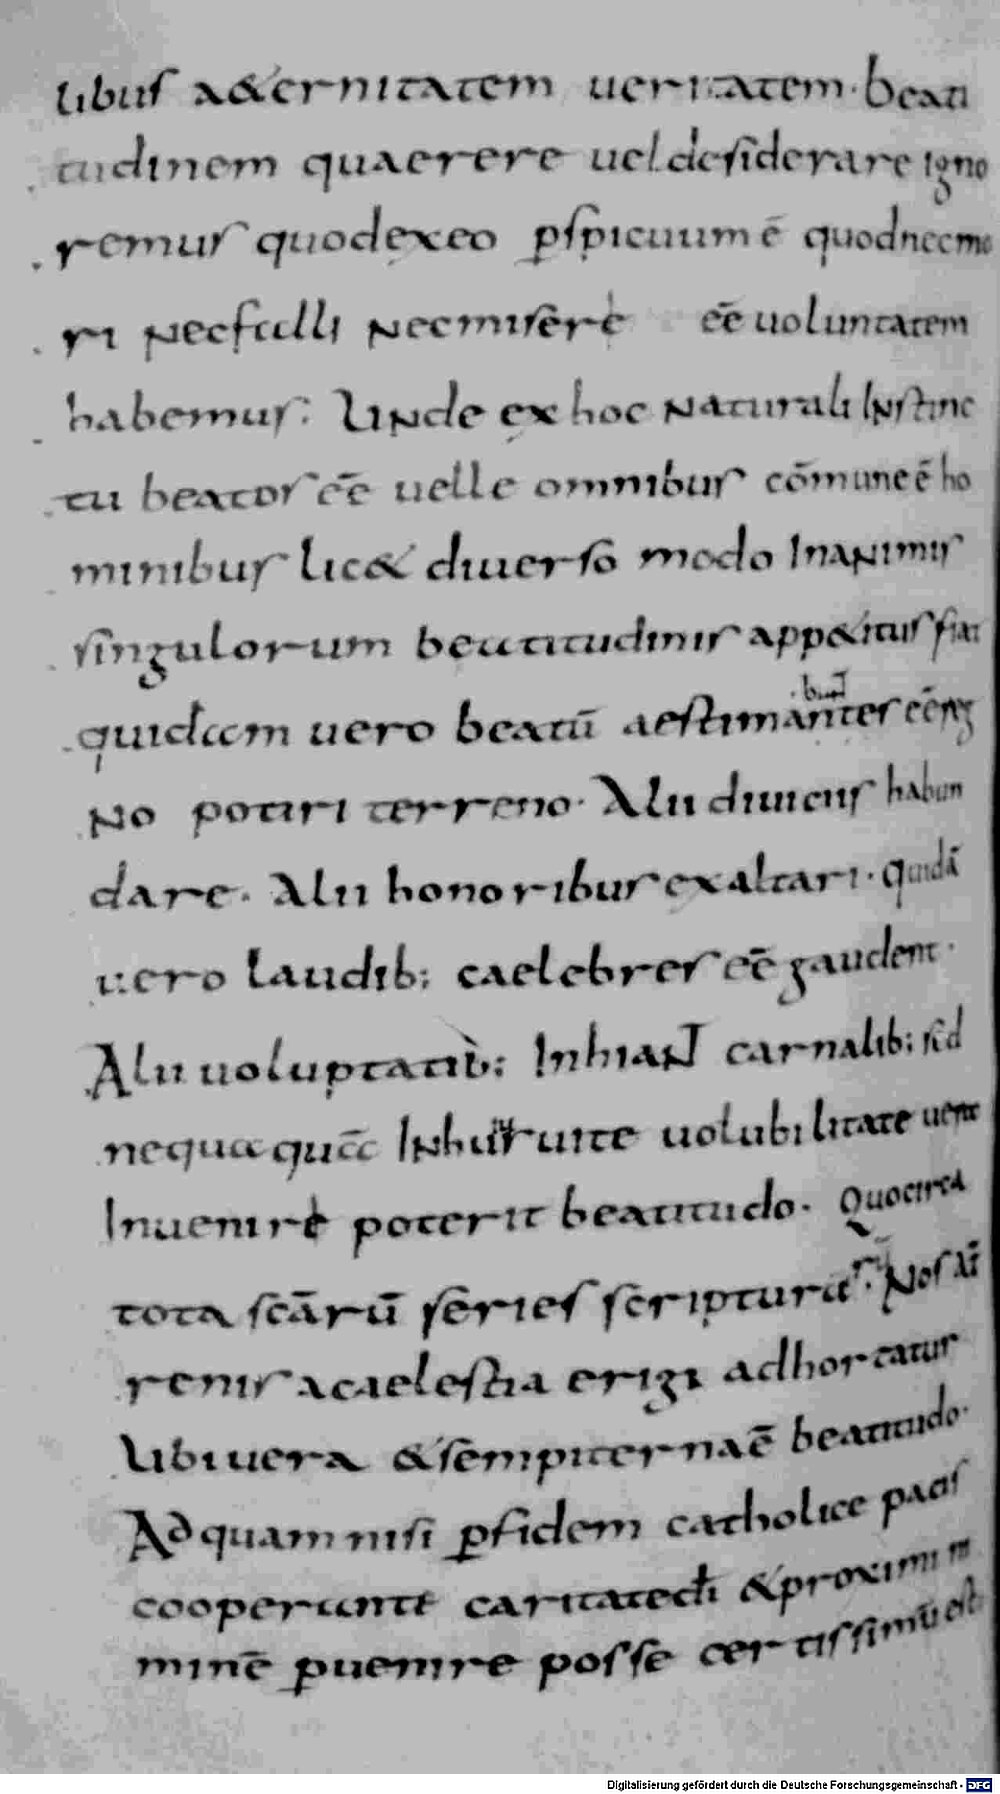 libus a&ernitatem ueritatem. beati
tudinem quaerere uel desiderare igno
remus quodexeo pspicuum ē quodnecmo
ri necfalli necmiserę eē uoluntatem
habemus; Unde ex hoc naturali Instinc
tu beatos eē uelle omnibus cōmune ē ho
minibus lic& diuerso modo Inanimis
singulorum beatitudinis app&itus fiat
quidam uero beatū aestimanter eē
no potiri terreno. Alii diuiciis habun
dare. Alii honoribus exaltari. quidā
uero laudib; caelebres eē gaudent.
Alii uoluptatib; InhiaNT carnalib; sed
nequaquā uolubilitate uera
Inuenire poterit beatitudo. Quocirca
tota scārū series scripturarū. Nos a ter
renis acaelestia erigi adhortatur
Ubi uera & sempiterna ē beatitudo.
Ad quam nisi pfidem catholice pacis
cooperante caritatedi & proximi ne
minē puenire posse certissimū est